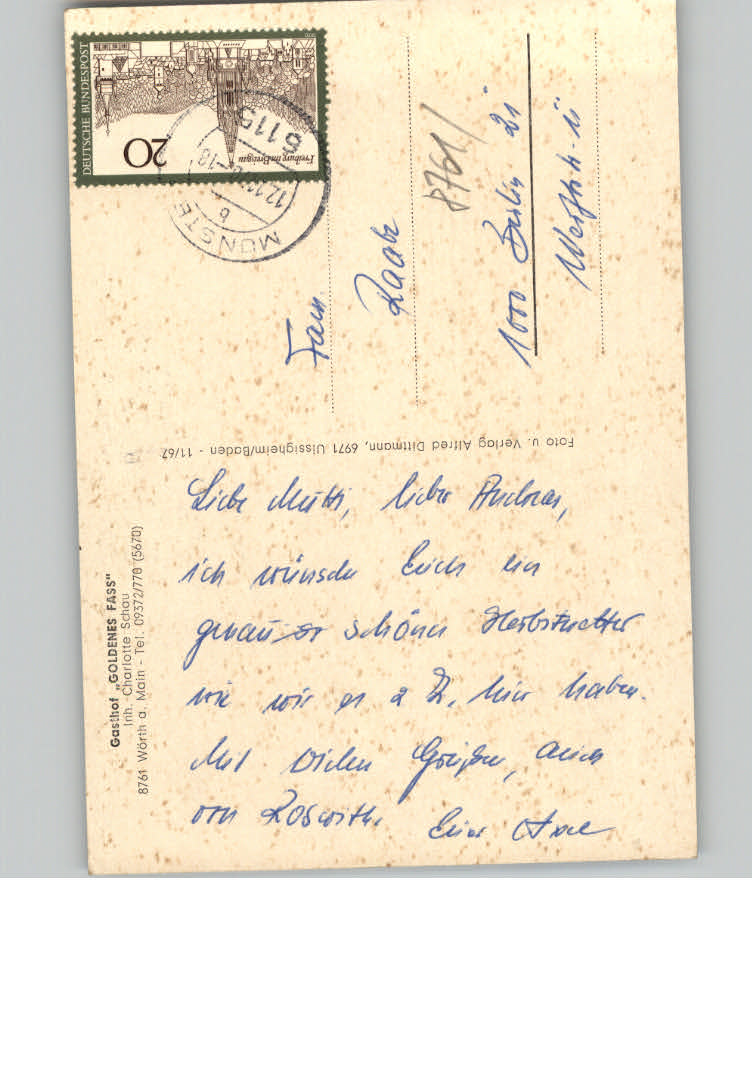 DEUTSCHE BUNDESPOST
20
Freiburg im Breisgau
6115 MÜNSTE
b
Fam.
Raabe
8761/
1000 Berlin 21
Foto u. Verlag Alfred Dittmann, 6971 Uissigheim/Baden - 11/67
Gasthof „GOLDENES FASS"
Inh. Charlotte Schau
8761 Wörth a. Main - Tel. 09372/770 (5670)
Liebe Mutti, lieber Andreas,
ich wünsche Euch ein
genau so schönes Herbstwetter
wie wir es z. Z. hier haben.
Mit vielen Grüßen, auch
von Roswitha
Euer Axel